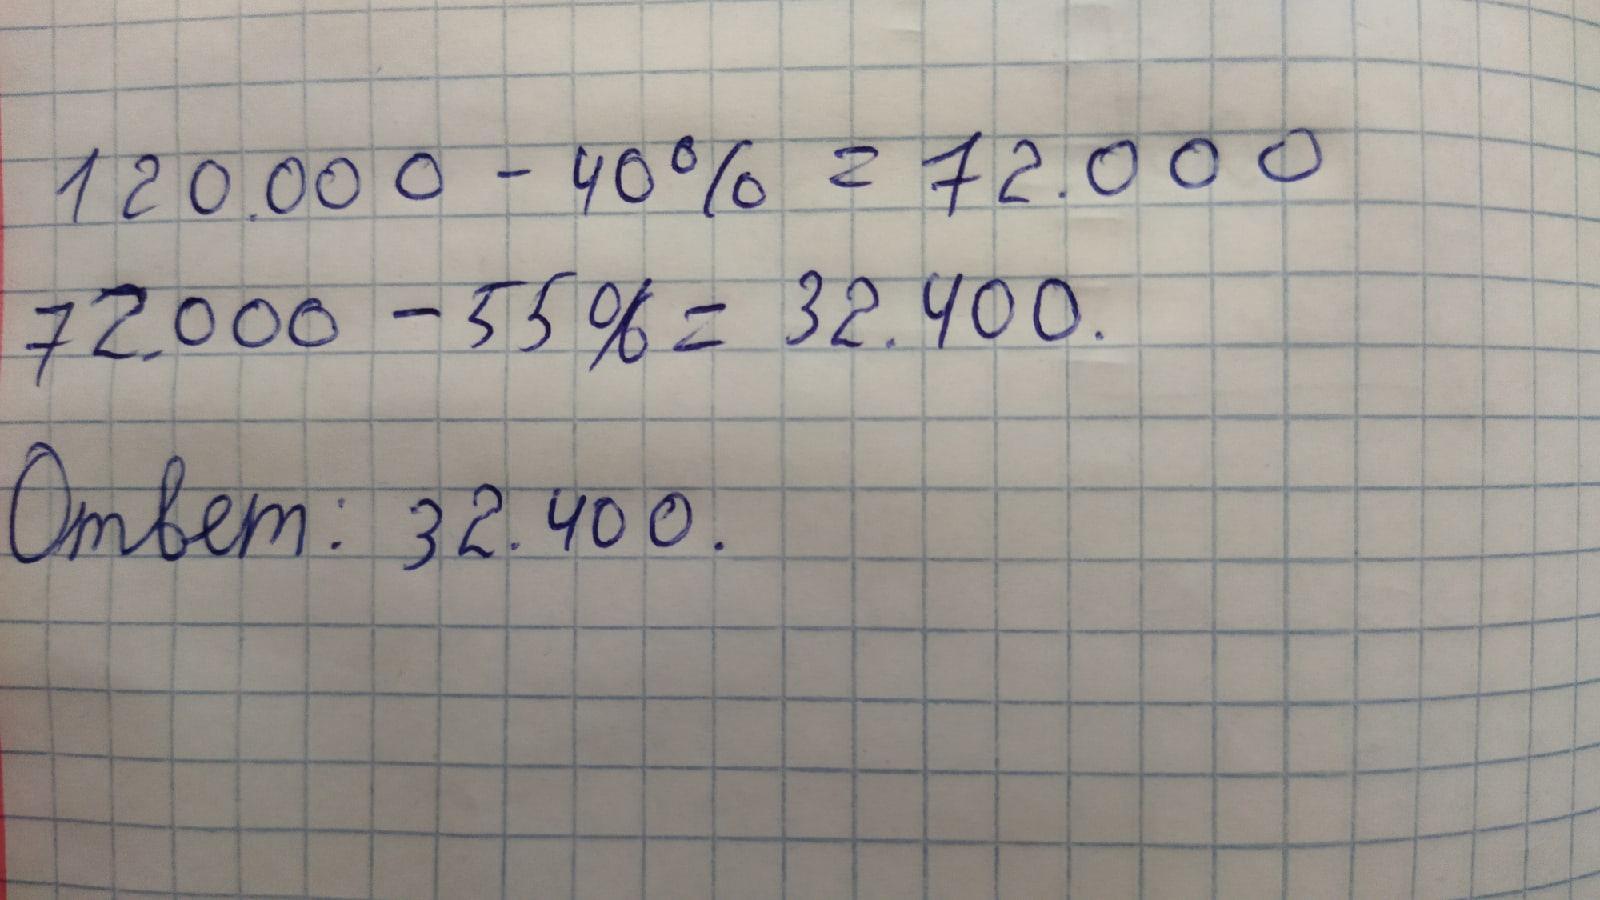 120.000 - 40% = 72.000
72.000 - 55% = 32.400.
Ответ: 32.400.